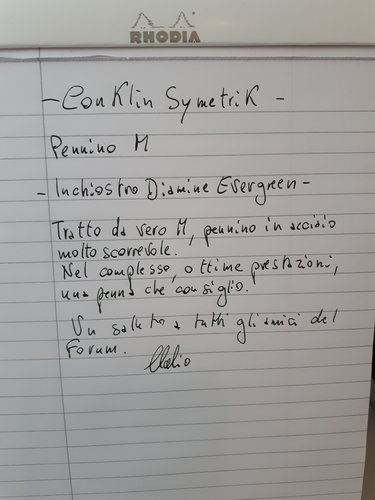 RHODIA
- Conklin Symetrik -
Pennino M
- Inchiostro Diamine Evergreen -
Tratto da vero M, pennino in acciaio
molto scorrevole.
Nel complesso, ottime prestazioni,
una penna che consiglio.
Un saluto a tutti gli amici del
Forum.